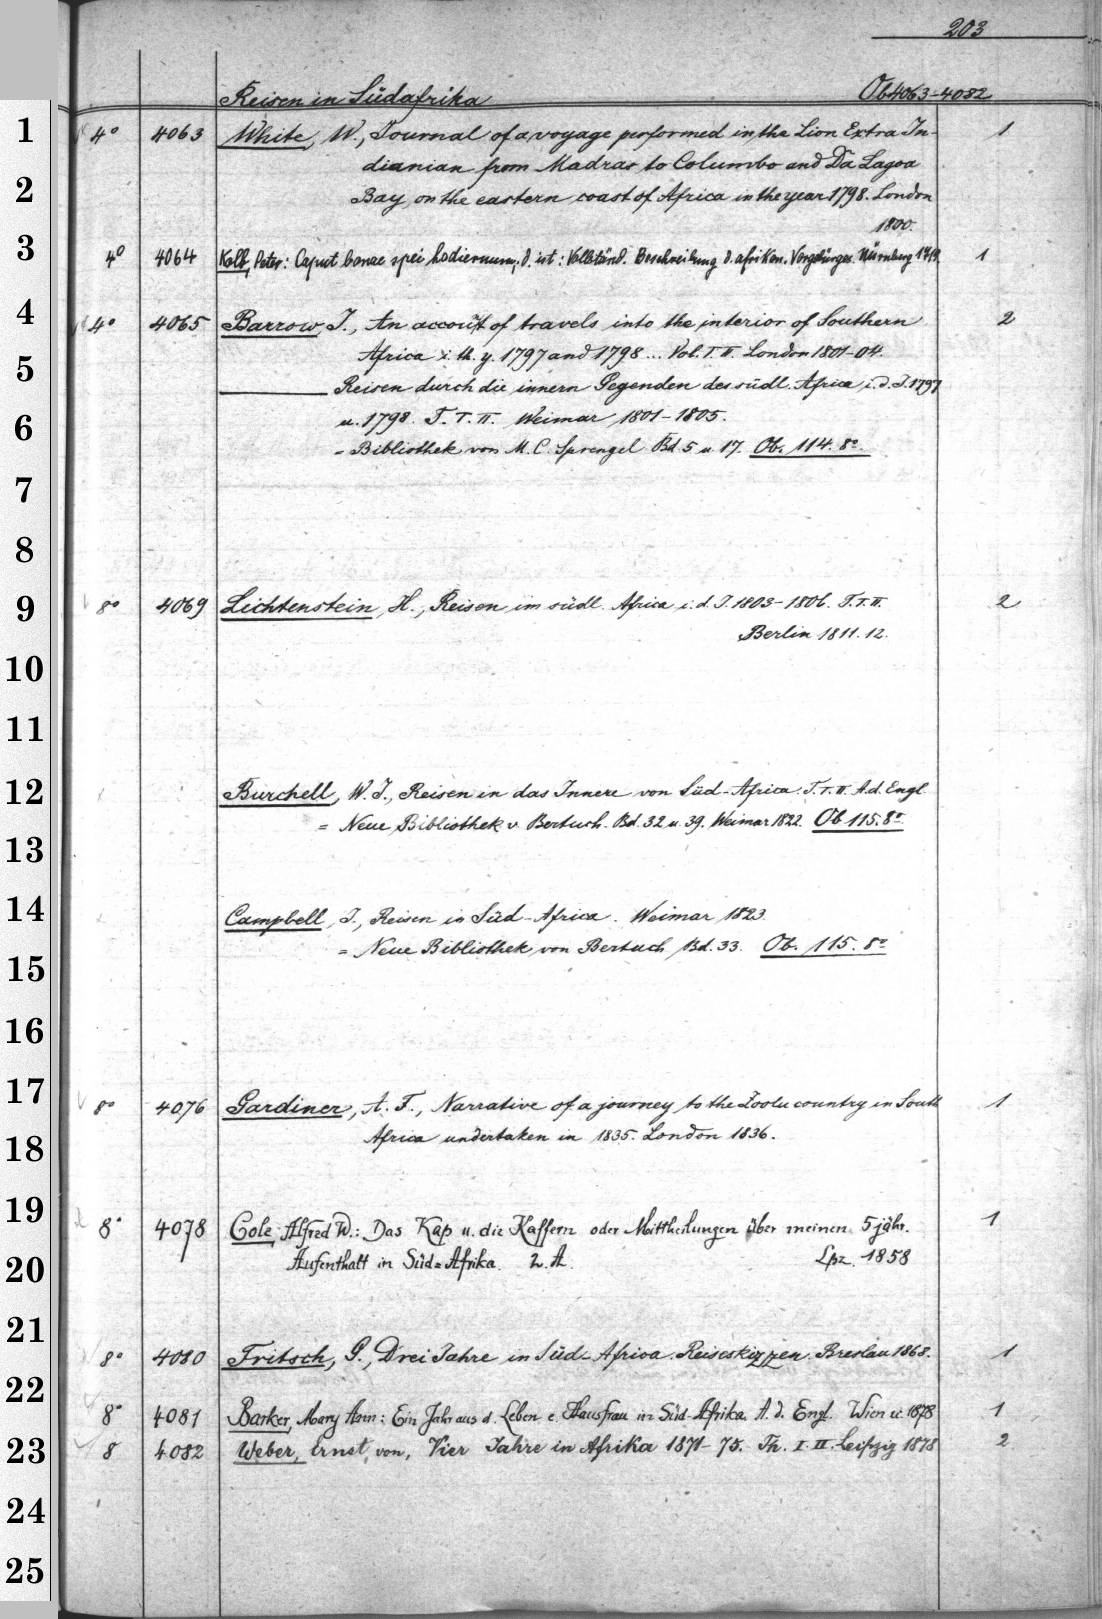 203
Reisen in Südafrika Ob 4063-4082
1 4° 4063 White, W., Journal of a voyage performed in the Lion Extra In- 1
dianian from Madras to Columbo and Da Lagoa
2 Bay, on the eastern coast of Africa in the year 1798. London
1800.
3 4° 4064 Kolb, Peter: Caput bonae spei hodiernum, d. ist: Vollständ. Beschreibung d. afrikan. Vorgebürges. Nürnberg 1719. 1
4 4° 4065 Barrow, J., An account of travels into the interior of Southern 2
5 Africa i. th. y. 1797 and 1798 ... Vol. I. II. London 1801-04.
Reisen durch die innern Gegenden des südl. Africa i. d. J. 1797
6 u. 1798. T. I. II. Weimar 1801-1805.
= Bibliothek von M. C. Sprengel Bd. 5 u. 17. Ob. 114. 8°.
7
8
9 8° 4069 Lichtenstein, H., Reisen im südl. Africa i. d. J. 1803-1806. T. I. II. 2
Berlin 1811. 12.
10
11
12 Burchell, W. J., Reisen in das Innere von Süd-Africa. T. I. II. A. d. Engl.
= Neue Bibliothek v. Bertuch. Bd. 32 u. 39. Weimar 1822. Ob 115. 8°
13
14 Campbell, J., Reisen in Süd-Africa. Weimar 1823.
15 = Neue Bibliothek von Bertuch Bd. 33. Ob. 115. 8°
16
17 8° 4076 Gardiner, A. F., Narrative of a journey to the Zoolu country in South 1
18 Africa undertaken in 1835. London 1836.
19 8° 4078 Cole, Alfred W.: Das Kap u. die Kaffern oder Mittheilungen über meinen 5jähr. 1
20 Aufenthalt in Süd=Afrika. 2. A. Lpz. 1858
21 8° 4080 Fritsch, G., Drei Jahre in Süd-Africa. Reiseskizzen. Breslau 1868. 1
22 8° 4081 Barker, Mary Ann: Ein Jahr aus d. Leben e. Hausfrau in Süd-Afrika. A. d. Engl. Wien 1878 1
23 8 4082 Weber, Ernst von, Vier Jahre in Afrika 1871-75. Th. I. II. Leipzig 1878 2
24
25